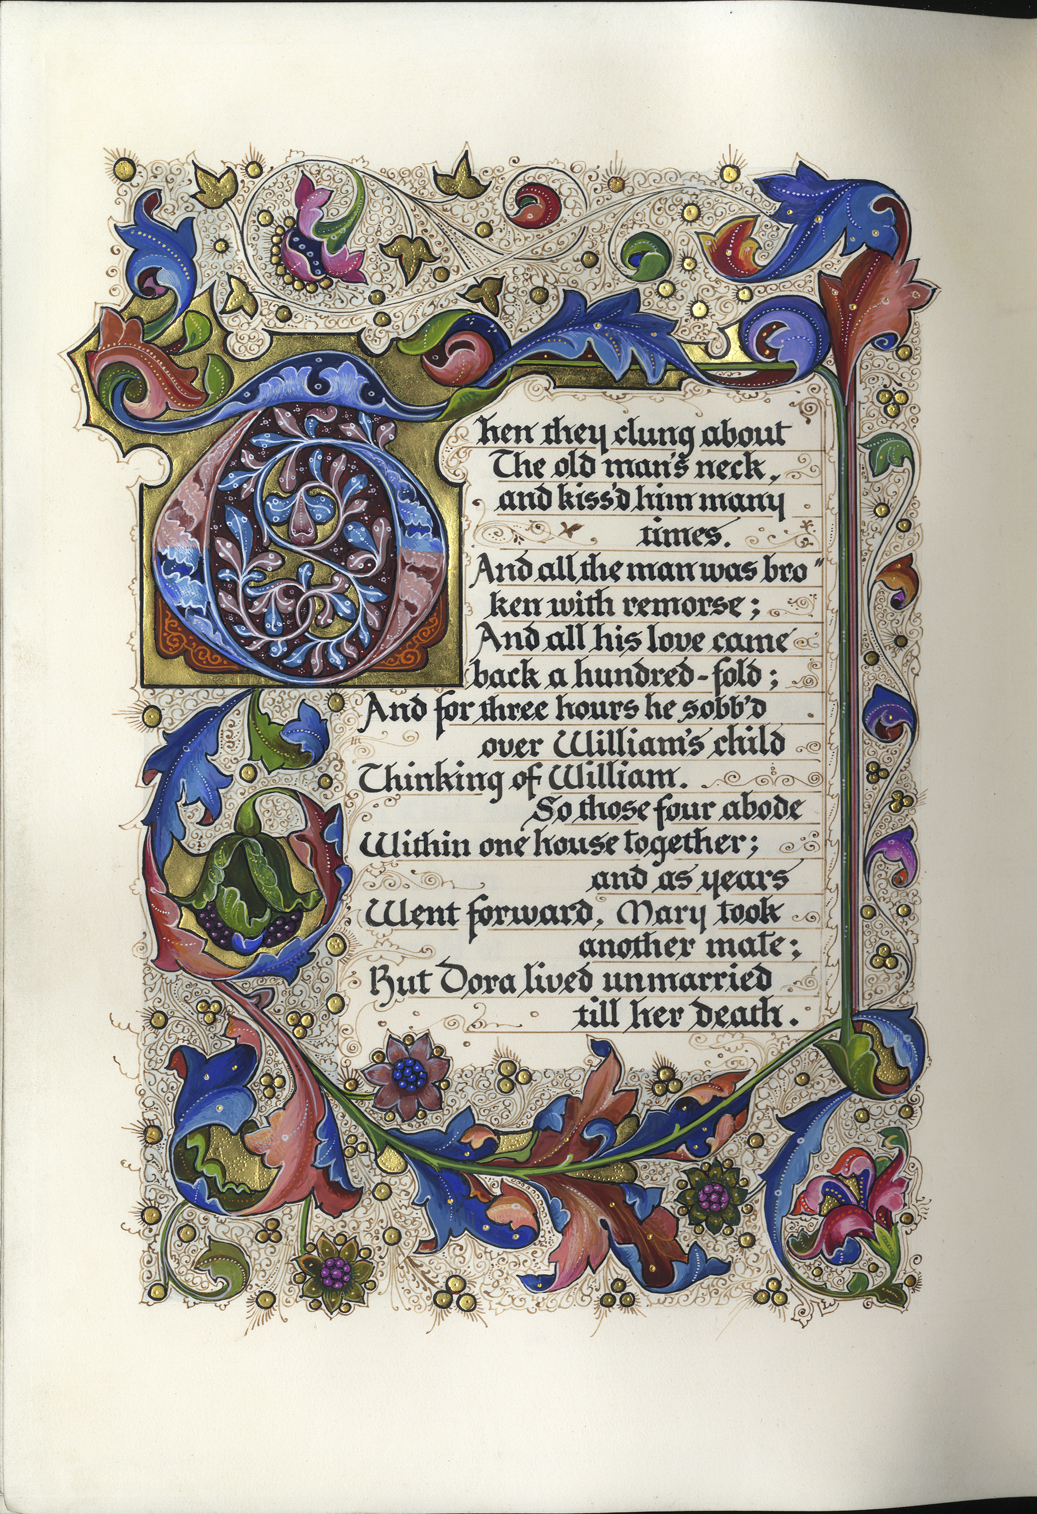 Then they clung about
The old man's neck,
and kiss'd him many
times.
And all the man was bro"
ken with remorse;
And all his love came
back a hundred-fold;
And for three hours he sobb'd
over William's child
Thinking of William.
So those four abode
Within one house together;
and as years
Went forward, Mary took
another mate;
But Dora lived unmarried
till her death.